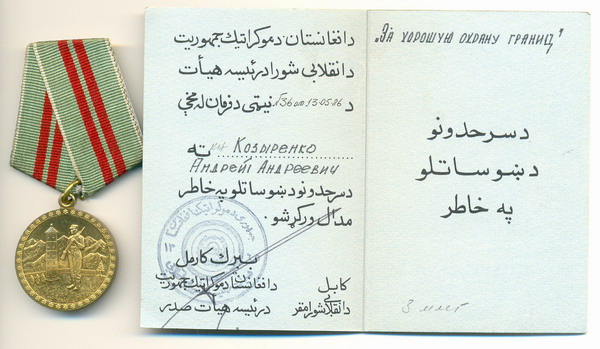 دافغانستان دموکراتيک جمهوريت
دانقلابي شورا درئيسه هيأت
د №36 от 13.05.86 نيټې دفرمان له مخې
Козыренко ته
Андрей Андреевич
دسرحدونو دښو ساتلو په خاطر
مدال ورکړشو.
ببرک کارمل
کابل
دافغانستان دموکراتيک جمهوريت
دانقلابي شورا مقر
درئيسه هيأت صدر
"За хорошую охрану границ"
دسرحدونو
دښو ساتلو
په خاطر